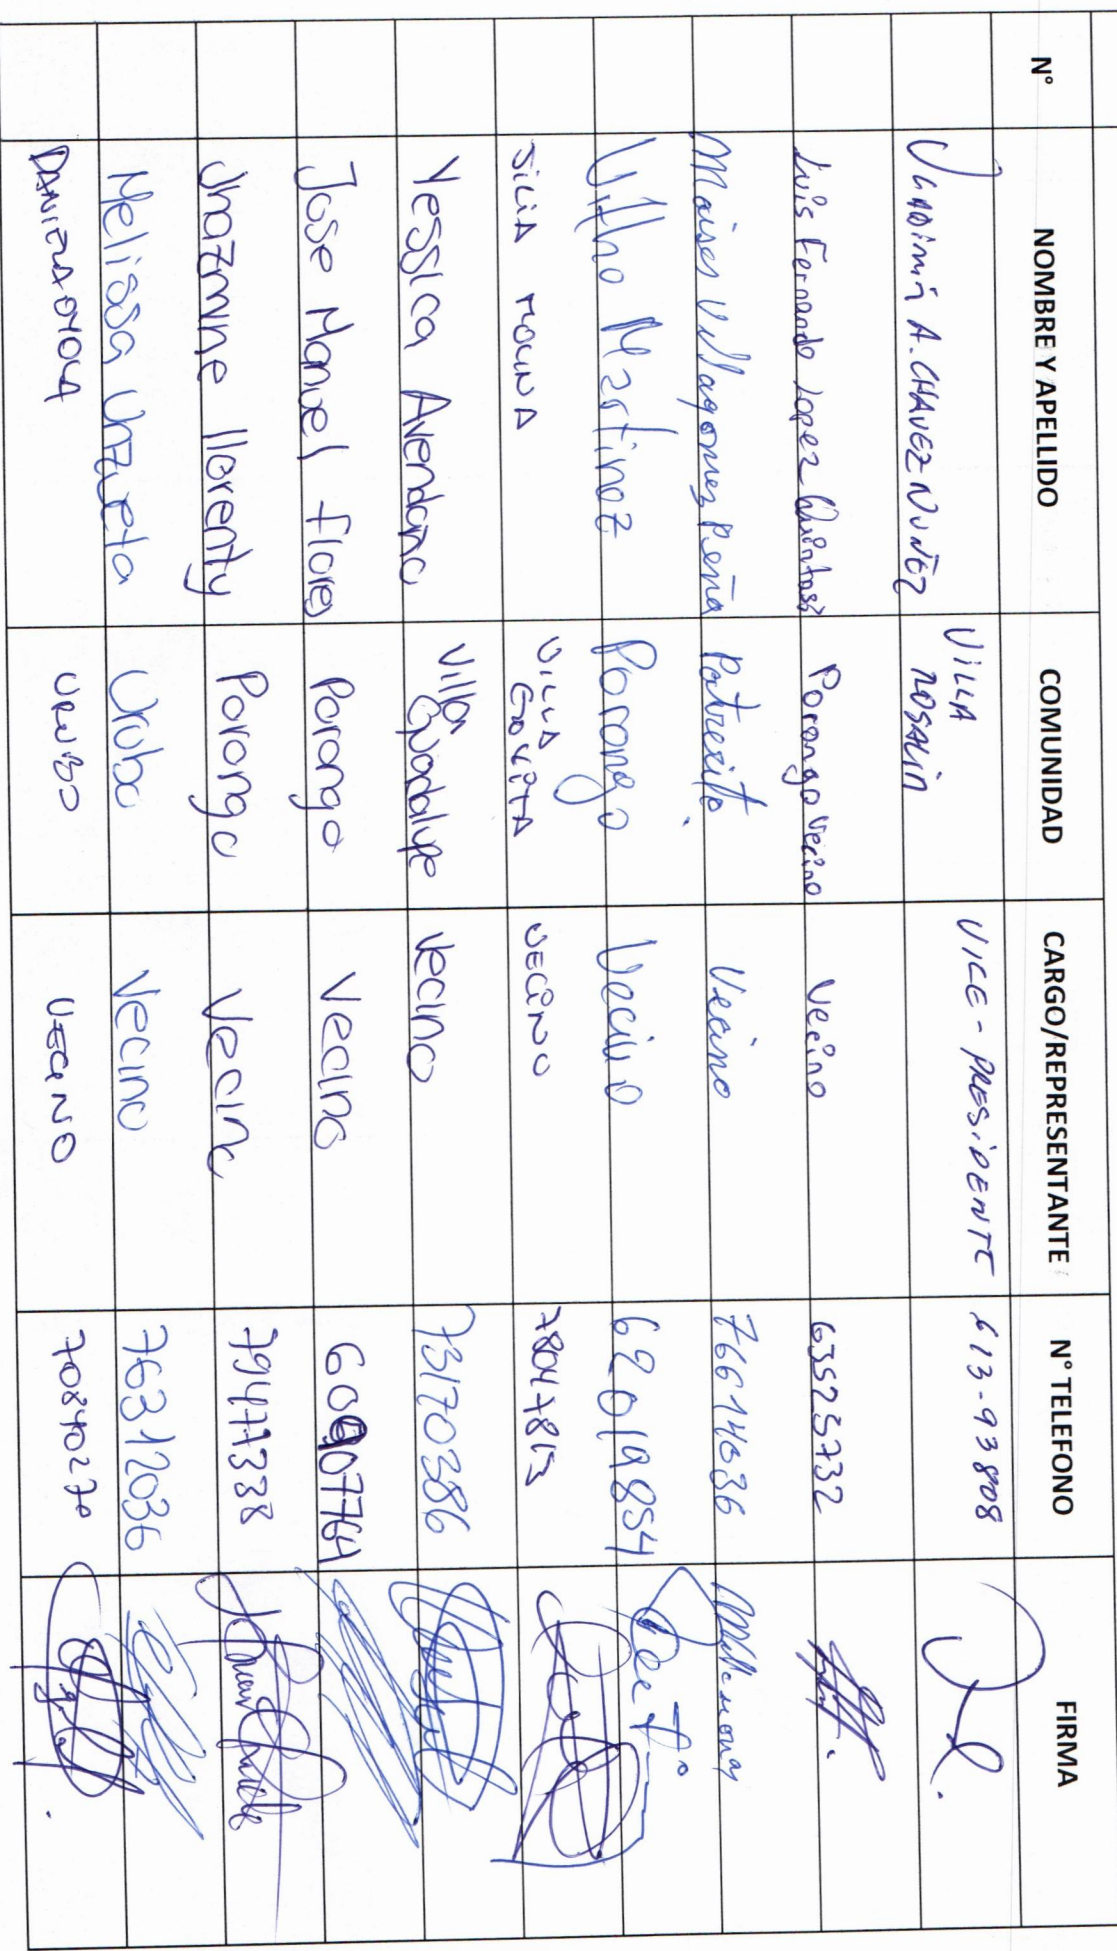 N° NOMBRE Y APELLIDO COMUNIDAD CARGO/REPRESENTANTE N° TELEFONO FIRMA
Vladimir A. CHAVEZ NUÑEZ VILLA ROSALIN VICE-PRESIDENTE 613-93808
Luis Fernando Lopez Porongo Vecino Vecino 63525732
Moises Villagomez Peña Potrerito Vecino 76614036
Vitho Martinez Porongo Vecino 62019854
JILIA MOLINA VILLA Vecino 78047815
Yessica Avendano Villa Guadalupe Vecino 73170386
Jose Manuel flores Porongo Vecino
Jhazmine llorenty Porongo Vecino 79477338
Melissa Unzueta Urubo Vecino 76312036
URUBO VECINO 70840270